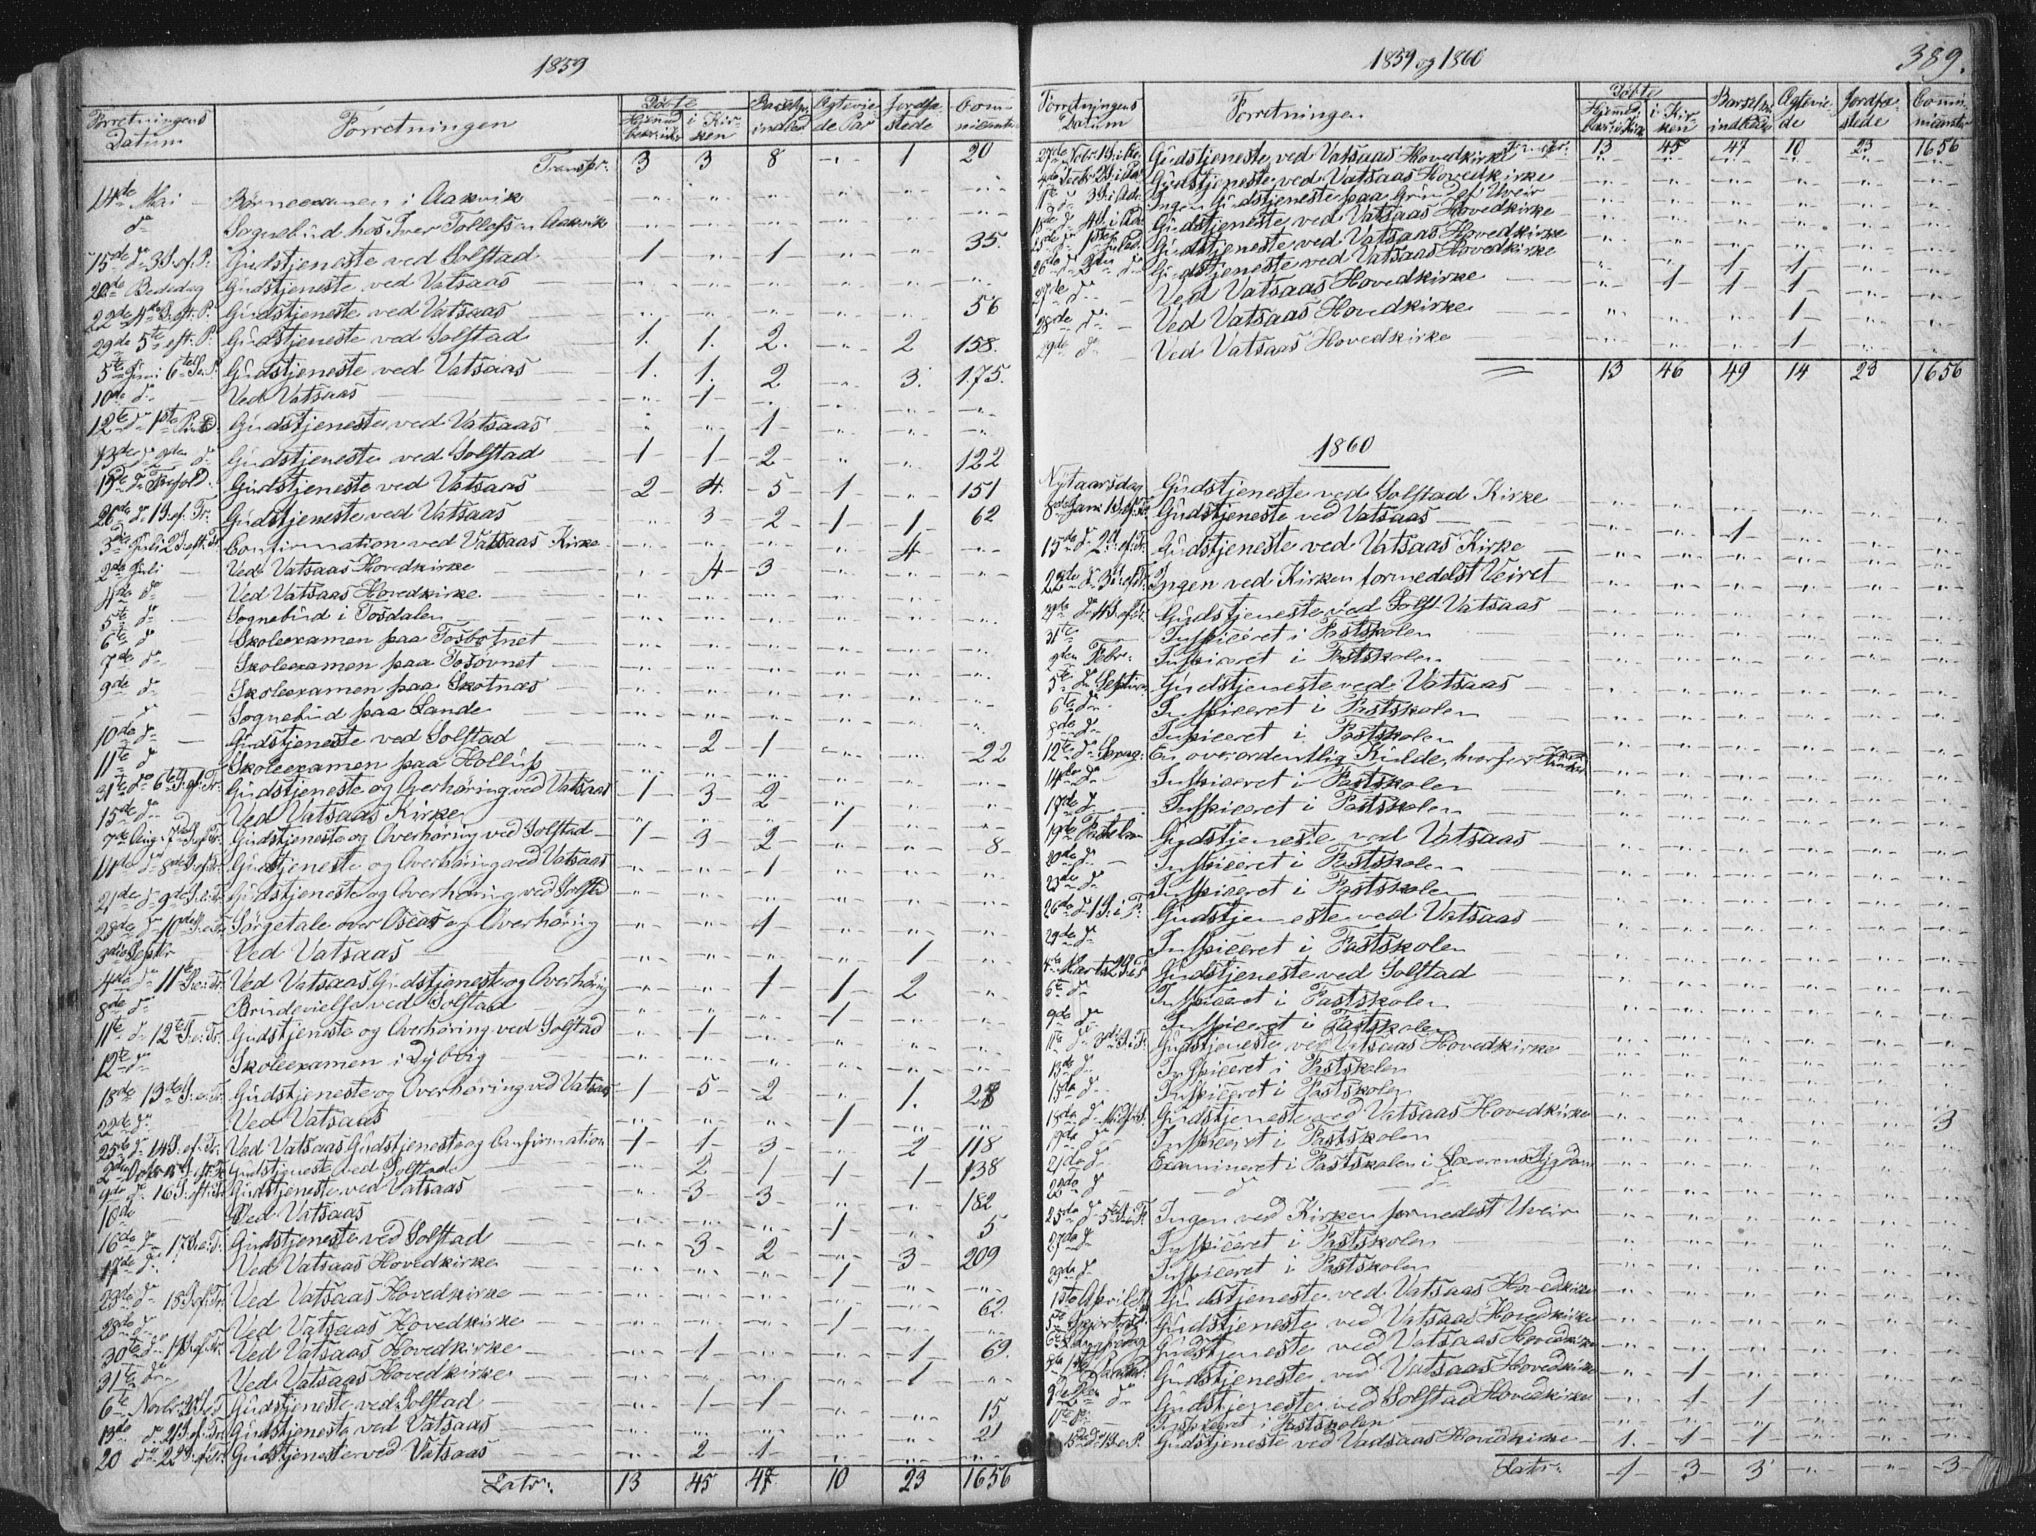 1859
Forretningens Datum Forretningen Døbte Hjemmed. bekr. i Kir. i Kirken Barselqv. indled. Ægtevie de Par Jordfæstede Communicanter
Transpr: 3 3 8 " 1 20
14de Mai Børneexamen i Aakvik
do Sognebud hos Iver Tollefsen Aakvik
15de do 3 S. ef. P. Gudstjeneste ved Solstad 1 " 1 " " 35.
20de Bededag Gudstjeneste ved Vatsaas
22de 4de S. eft. P. Gudstjeneste ved Vatsaas 56
29de 5te eft. P. Gudstjeneste ved Solstad 1. 1. 2. " 2 158.
5te Juni 6te S. e. P. Gudstjeneste ved Vatsaas 1. 1. 2 " 3. 175.
10de do Ved Vatsaas " 1
12te do 1ste Pintsd. Gudstjeneste ved Vatsaas " " 1
13de do 2den do Gudstjeneste ved Solstad 1 1 2 " " 122
19de do Trefold. Gudstjeneste ved Vatsaas 2 4 5 1 " 151
26de do 1 S. ef. Tr. Gudstjeneste ved Vatsaas " 3 2 1 1 62
3die Juli 2 S. eft. Tr. Confirmation ved Vatsaas Kirke " " " " 4
2de Juli Ved Vatsaas Hovedkirke " 4 3
4de do Ved Vatsaas Hovedkirke
5te do Sognebud i Tosdalen
6te do Skoleexamen paa Tosbotnet
7de do Skoleexamen paa Tosovnet
9de do Skoleexamen paa Skotnæs
Sognebud paa Lande
10de do Gudstjeneste ved Solstad " 2 1 " " 22
11te do Skoleexamen paa Hollup
31te do 6te S. ef. Tr. Gudstjeneste og Overhøring ved Vatsaas 1 3 2
15de do Ved Vatsaas Kirke " " " 1
7de Aug. 7de S. ef. Tr. Gudstjeneste og Overhøring ved Solstad 1 3 2 " " 8
14de do 8de S. ef. Tr. Gudstjeneste og Overhøring ved Vatsaas " " 1
21de do 9de S. e. Tr. Gudstjeneste og Overhøring ved Solstad
28de do 10de S. e. Tr. Sørgetale over Oscar og Overhøring " " 1
3die Septbr Ved Vatsaas " " " " 1
4de do 11te S. e. Tr. Ved Vatsaas Gudstjeneste og Overhøring " " 1 1 2
8de do Brudevielse ved Solstad " " " 1
11te do 12te S. e. Tr. Gudstjeneste og Overhøring ved Solstad " 1
12te do Skoleexamen i Dybvig
18de 13de S. e. Tr. Gudstjeneste og Overhøring ved Vatsaas 1 5 2 " 1. 28
22de do Ved Vatsaas " " " 1
25de do 14 S. ef. Tr. Ved Vatsaas Gudstjeneste og Confirmation 1 1 3 " 2 118
2den Octobr 15 S. eft. Tr. Gudstjeneste ved Solstad " 2 1 1 1 138
9de do 16 S. eft. Tr. Gudstjeneste ved Vatsaas " 3 3 " " 182
10de Ved Vatsaas " " " 1 " 5
16de do 17 S. e. Tr. Gudstjeneste ved Solstad " 3 2 " 3 209
17de do Ved Vatsaas Hovedkirke " " " 1
23de do 18 S. ef. Tr. Ved Vatsaas Hovedkirke 62.
28de do Ved Vatsaas Hovedkirke " " " 1
30te do 19 S. ef. Tr. Ved Vatsaas Hovedkirke " 1 " " 1 69.
31te do Ved Vatsaas Hovedkirke " " " " 1
6te Novbr. 20 S. e. T. Gudstjeneste ved Solstad " 1 1 " " 15
13de do 21 S. ef. Tr. Gudstjeneste ved Vatsaas 21
20 do 22 S. ef. Tr. Gudstjeneste ved Vatsaas " 2 1
Latr: 13 45 47 10 23 1656
1859 og 1860 389.
Forretningens Datum Forretningen Døbte Hjemmed. bekr. i Kirk i Kirken Barselqv. indledede Ægteviede Jordfæstede Communicanter
Transpr: 13 45 47 10 23 1656
27de Novbr Gudstjeneste ved Vatsaas Hovedkirke
4de Decbr 2 S. i Ad. Gudstjeneste ved Vatsaas Hovedkirke
11te do 3 S. i Ad. Ingen Gudstjeneste paa Grund af Uveir
18de do 4 S. i Ad. Gudstjeneste ved Vatsaas Hovedkirke
25de do 1ste Juled. Gudstjeneste ved Vatsaas Hovedkirke
26de do 2den do Gudstjeneste ved Vatsaas Hovedkirke " " 1 1
27de do Ved Vatsaas Hovedkirke " 1 1 1
28de do Ved Vatsaas Hovedkirke " " " 1
29de do Ved Vatsaas Hovedkirke " " " 1
13 46 49 14 23 1656
1860
Nytaarsdag Gudstjeneste ved Solstad Kirke
8de Jan. 1 S. ef. Tr. Gudstjeneste ved Vatsaas " " 1
15de do 2 S. ef. Tr. Gudstjeneste ved Vatsaas Kirke
22de do 3 S. ef. Tr. Ingen ved Kirken formedelst Veiret
29de do 4 S. ef. Tr. Gudstjeneste ved Vatsaas
31te Inspiceret i Fastskolen
2den Febr. Inspiceret i Fastskolen
5te do Septua. Gudstjeneste ved Vatsaas
6te do Inspiceret i Fastskolen
8de do Inspiceret i Fastskolen
12te do Sexag. En overordentlig Kulde, hvorfor
14de do Inspiceret i Fastskolen
17de do Inspiceret i Fastskolen
19de Fastelavn Gudstjeneste ved Vatsaas
20de do Inspiceret i Fastskolen
23de do Inspiceret i Fastskolen
26de do 1 S. i F. Gudstjeneste ved Vatsaas
29de do Inspiceret i Fastskolen
4de Marts 2 S. i F. Gudstjeneste ved Solstad
6te do Inspiceret i Fastskolen
9de do Inspiceret i Fastskolen
11te do 3die S. i F. Gudstjeneste ved Vatsaas Hovedkirke
13de do Inspiceret i Fastskolen
15de do Inspiceret i Fastskolen
18de do Midfast. Gudstjeneste ved Vatsaas Hovedkirke 3
19de do Inspiceret i Fastskolen
21de do Examineret i Fastskolen i Lærerens Sygdom
22de do do do
25de do 5te S. i F. Ingen ved Kirken formedelst Uveir
27de do Inspiceret i Fastskolen
29de do Inspiceret i Fastskolen
1ste April Gudstjeneste ved Vatsaas Hovedkirke
5te Skjertorsd. Gudstjeneste ved Vatsaas Hovedkirke
6te Langfredag Gudstjeneste ved Vatsaas Hovedkirke
8de 1ste Paaskd. Gudstjeneste ved Vatsaas Hovedkirke " 1
9de 2den do Gudstjeneste ved Solstad Hovedkirke " 1 1
11te do Inspiceret i Fastskolen
15de do 1 S. e. P. Gudstjeneste ved Vadsaas Hovedkirke 1. 1 1
Latr: 1 3 3 " " 3